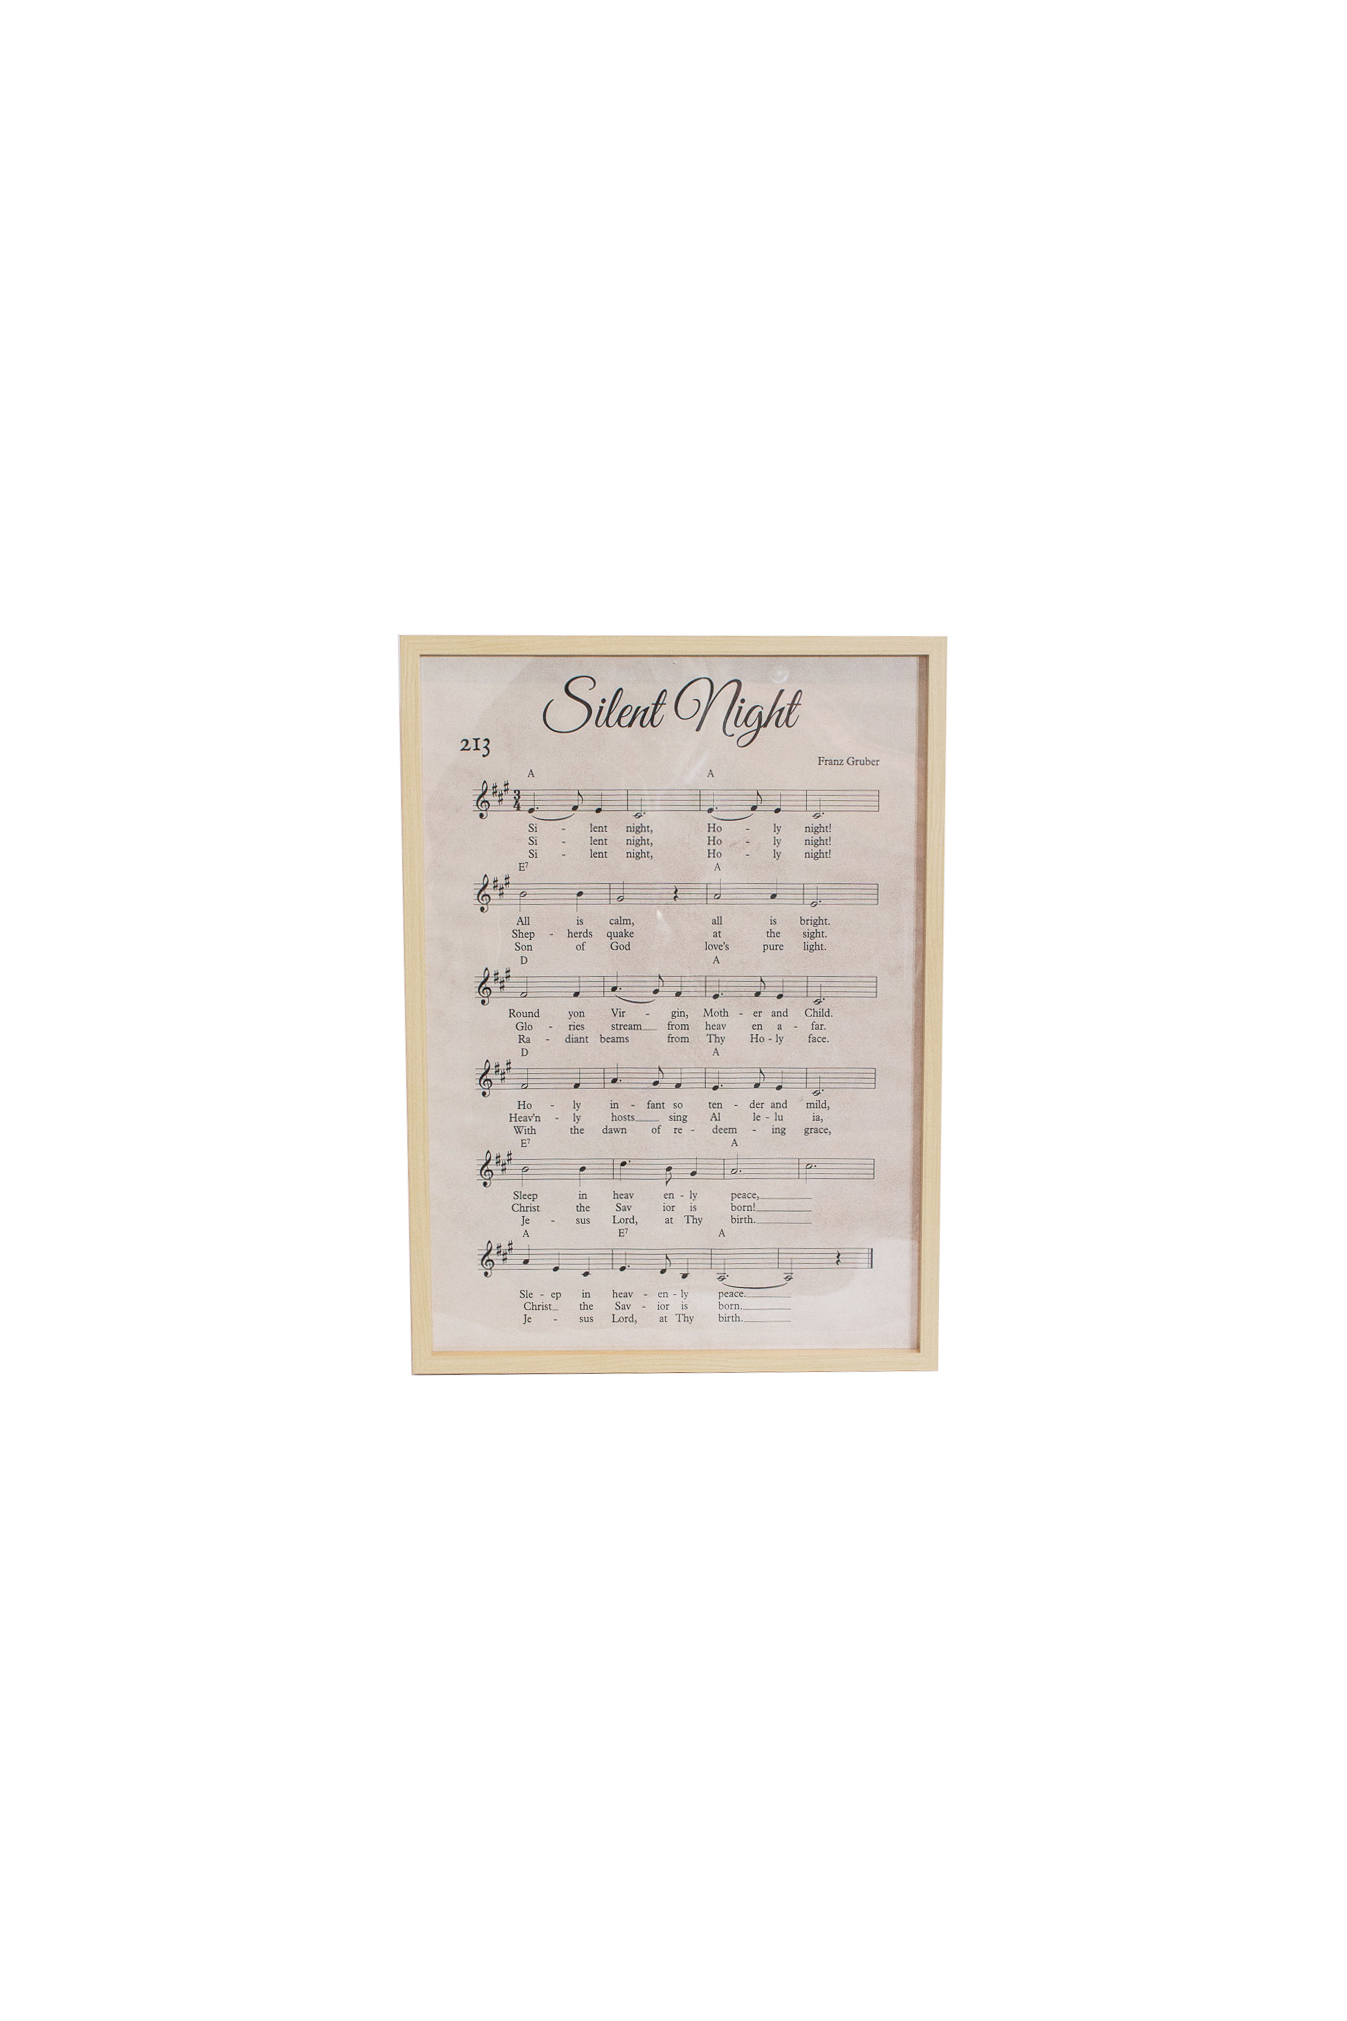 Silent Night
213
Franz Gruber
A A
3
4
Si - lent night, Ho - ly night!
Si - lent night, Ho - ly night!
Si - lent night, Ho - ly night!
E7 A
All is calm, all is bright.
Shep - herds quake at the sight.
Son of God love's pure light.
D A
Round yon Vir - gin, Moth - er and Child.
Glo - ries stream___ from heav en a - far.
Ra - diant beams from Thy Ho - ly face.
D A
Ho - ly in - fant so ten - der and mild,
Heav'n - ly hosts____ sing Al le - lu ia,
With the dawn of re - deem - ing grace,
E7 A
Sleep in heav en - ly peace,________
Christ the Sav ior is born!________
Je - sus Lord, at Thy birth.________
A E7 A
Sle - ep in heav - en - ly peace.________
Christ_ the Sav - ior is born.________
Je - sus Lord, at Thy birth.________